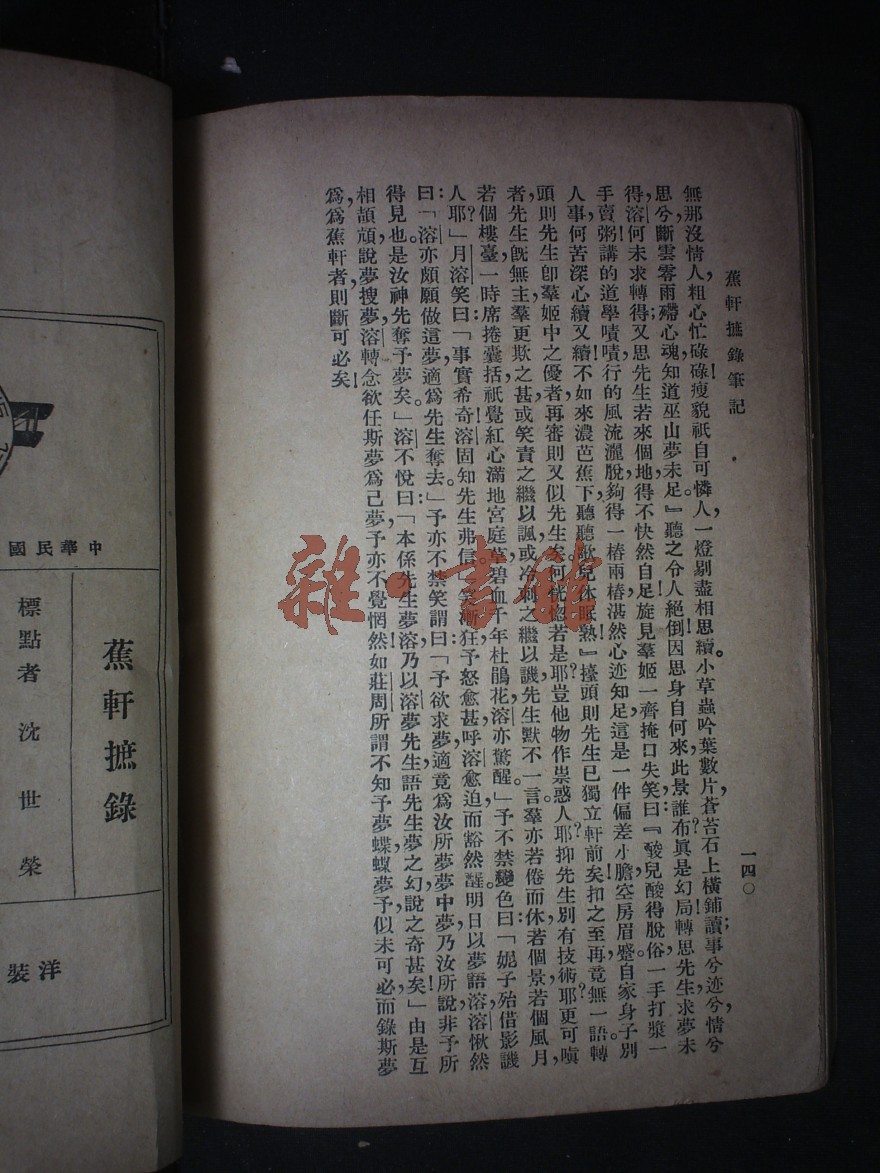 蕉軒摭錄筆記
一四〇
無那沒情人，粗心忙碌碌，瘦貌祇自可憐人，一燈剔盡相思續。小草蟲吟葉數片，蒼苔石上橫鋪讀，事兮迹兮情兮
思兮，斷雲零雨殢心魂，知道巫山夢未足！』聽之令人絕倒，因思身自何來？此景誰布？眞是幻局！轉思先生求夢未
得，溶何未求轉得；又思先生若來個地，得不快然自足。旋見羣姬一齊掩口失笑曰：『酸兒酸得脫俗，一手打漿一
手賣粥，講的道學嘖嘖，行的風流灑脫，夠得一樁兩樁，湛然心迹知足，這是一件偏差，小膽空房眉蹙，自家身子別
人事，何苦深心續又續，不如來濃芭蕉下，聽聽歌兒休眠熟！』擡頭則先生已獨立軒前矣，扣之至再，竟無一語。轉
頭則先生卽羣姬中之優者，再審則又似先生矣。何恍惚若是耶？豈他物作祟惑人耶？抑先生別有技術耶？更可嗔
者，先生旣無主，羣更欺之甚，或笑責之，繼以諷，或冷刺之，繼以譏，先生默不一言，羣亦若倦而休，若個景，若個風月，
若個樓臺，一時席捲囊括，祇覺紅心滿地宮庭草，碧血千年杜鵑花，溶亦驚醒。」予不禁變色曰：「妮子殆借影譏
人耶？」月溶笑曰：「事實希奇，溶固知先生弗信。」笑漸狂，予怒愈甚，呼溶愈迫，而豁然醒。明日以夢語溶，溶愀然
曰：「溶亦頗願做這夢，適爲先生奪去。」予亦不禁笑謂曰：「予欲求夢，適竟爲汝所夢，夢中夢乃汝所說，非予所
得見也，是汝神先奪予夢矣。」溶不悅曰：「本係先生夢溶，乃以溶夢先生語先生，夢之幻，說之奇甚矣！」由是互
相頡頏，說夢搜夢，溶轉念欲任斯夢爲己夢，予亦不覺惘然，如莊周所謂不知予夢蝶，蝶夢予，似未可必，而錄斯夢
爲爲蕉軒者，則斷可必矣！
中華民國
蕉軒摭錄
標點者沈世榮
洋裝
雜·書館